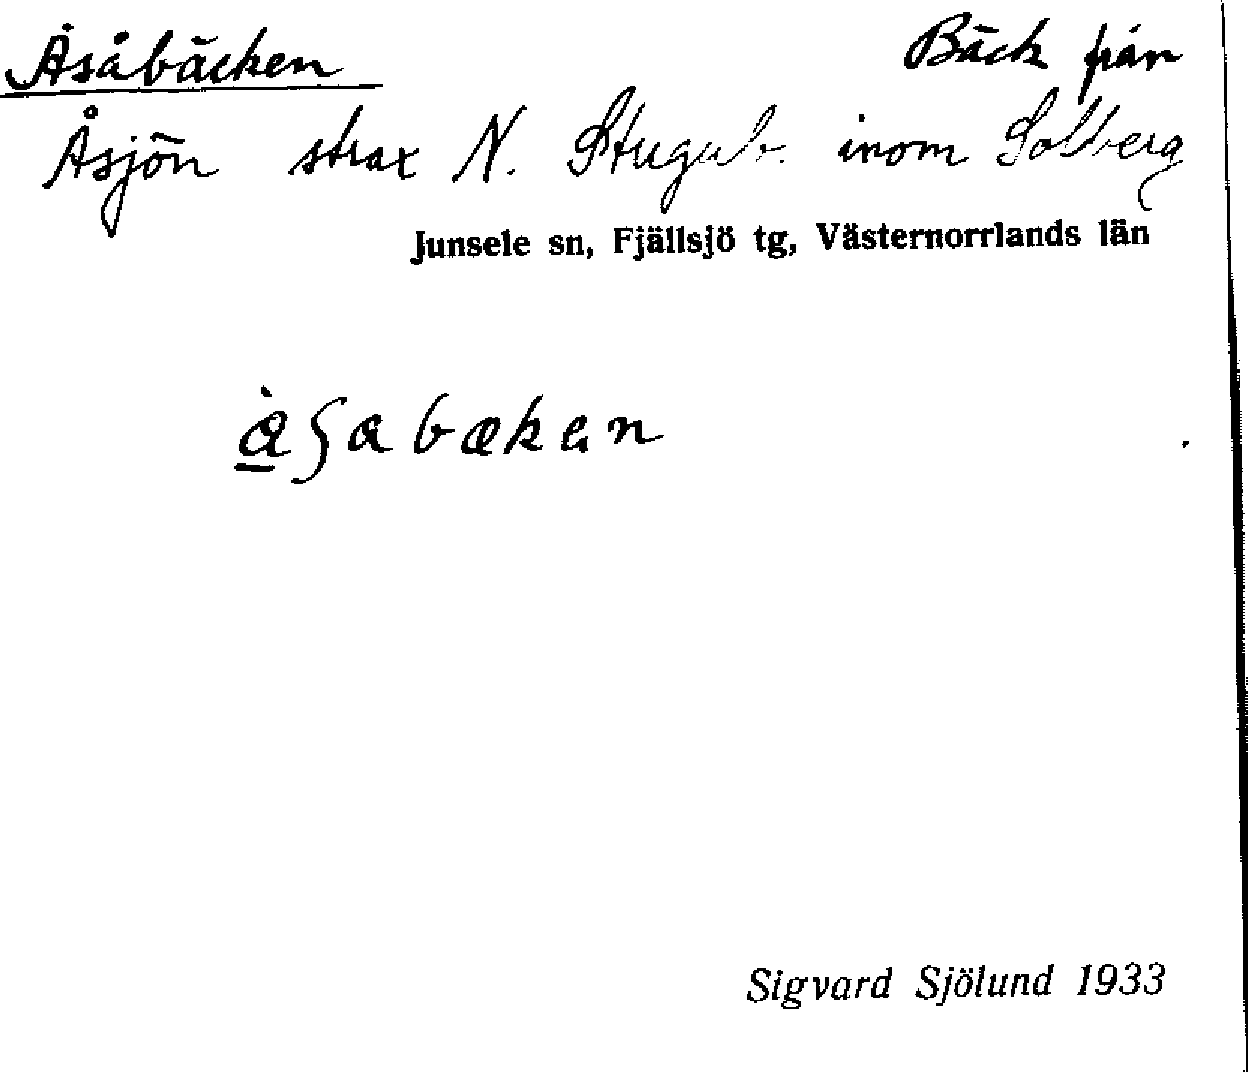 Åsåbäcken Bäck från
Åsjön strax N. Stugub. inom Solberg
Junsele sn, Fjällsjö tg, Västernorrlands län
Sigvard Sjölund 1933